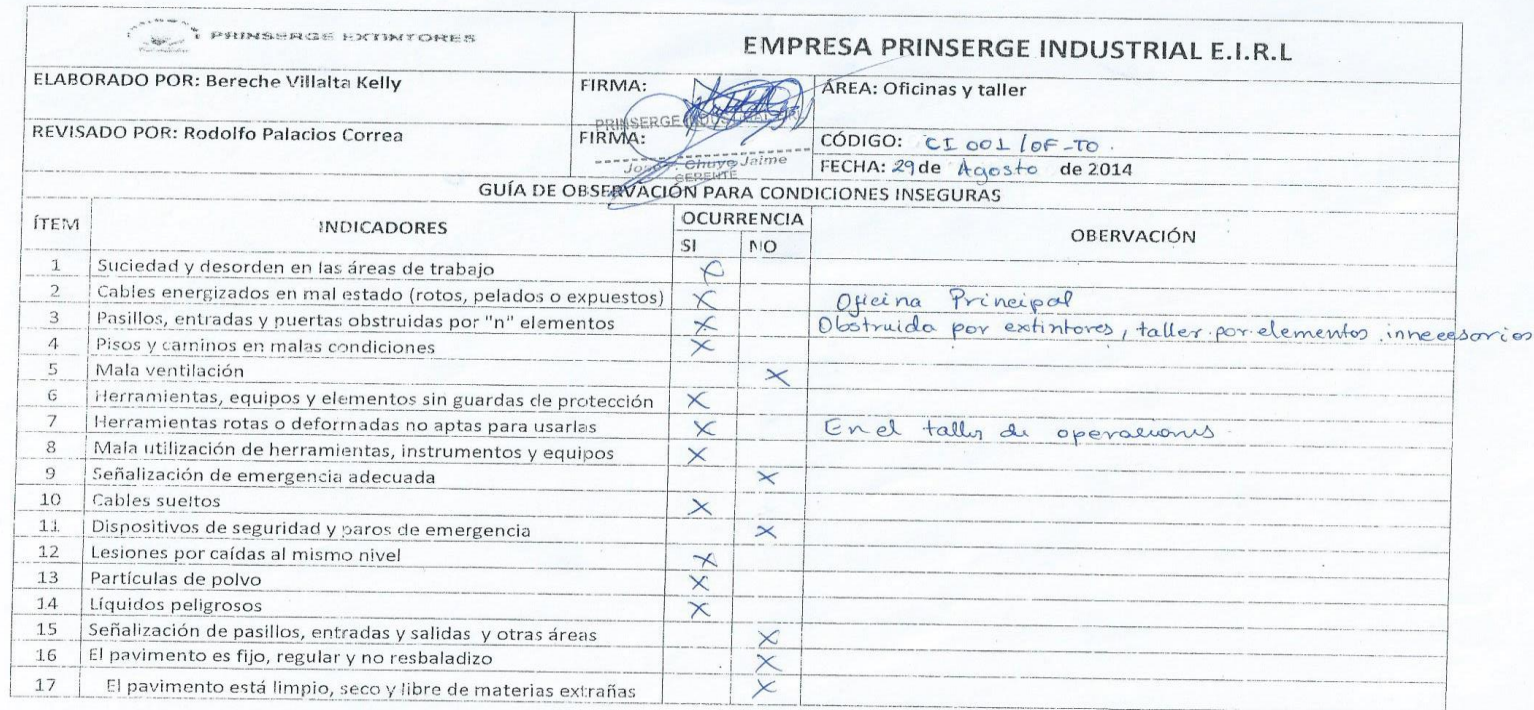 PRINSERGE EXTINTORES
EMPRESA PRINSERGE INDUSTRIAL E.I.R.L
ELABORADO POR: Bereche Villalta Kelly
FIRMA:
ÁREA: Oficinas y taller
PRINSERGE INDUSTRIAL
REVISADO POR: Rodolfo Palacios Correa
FIRMA:
CÓDIGO: CI 001 / OF-TO.
Chuye Jaime
GERENTE
FECHA: 29 de Agosto de 2014
GUÍA DE OBSERVACIÓN PARA CONDICIONES INSEGURAS
ÍTEM INDICADORES OCURRENCIA OBERVACIÓN
SI NO
1 Suciedad y desorden en las áreas de trabajo X
2 Cables energizados en mal estado (rotos, pelados o expuestos) X Oficina Principal
3 Pasillos, entradas y puertas obstruidas por "n" elementos X Obstruida por extintores, taller por elementos inneeesarios
4 Pisos y caminos en malas condiciones X
5 Mala ventilación X
6 Herramientas, equipos y elementos sin guardas de protección X
7 Herramientas rotas o deformadas no aptas para usarlas X En el taller de operaciones.
8 Mala utilización de herramientas, instrumentos y equipos X
9 Señalización de emergencia adecuada X
10 Cables sueltos X
11 Dispositivos de seguridad y paros de emergencia X
12 Lesiones por caídas al mismo nivel X
13 Partículas de polvo X
14 Líquidos peligrosos X
15 Señalización de pasillos, entradas y salidas y otras áreas X
16 El pavimento es fijo, regular y no resbaladizo X
17 El pavimento está limpio, seco y libre de materias extrañas X